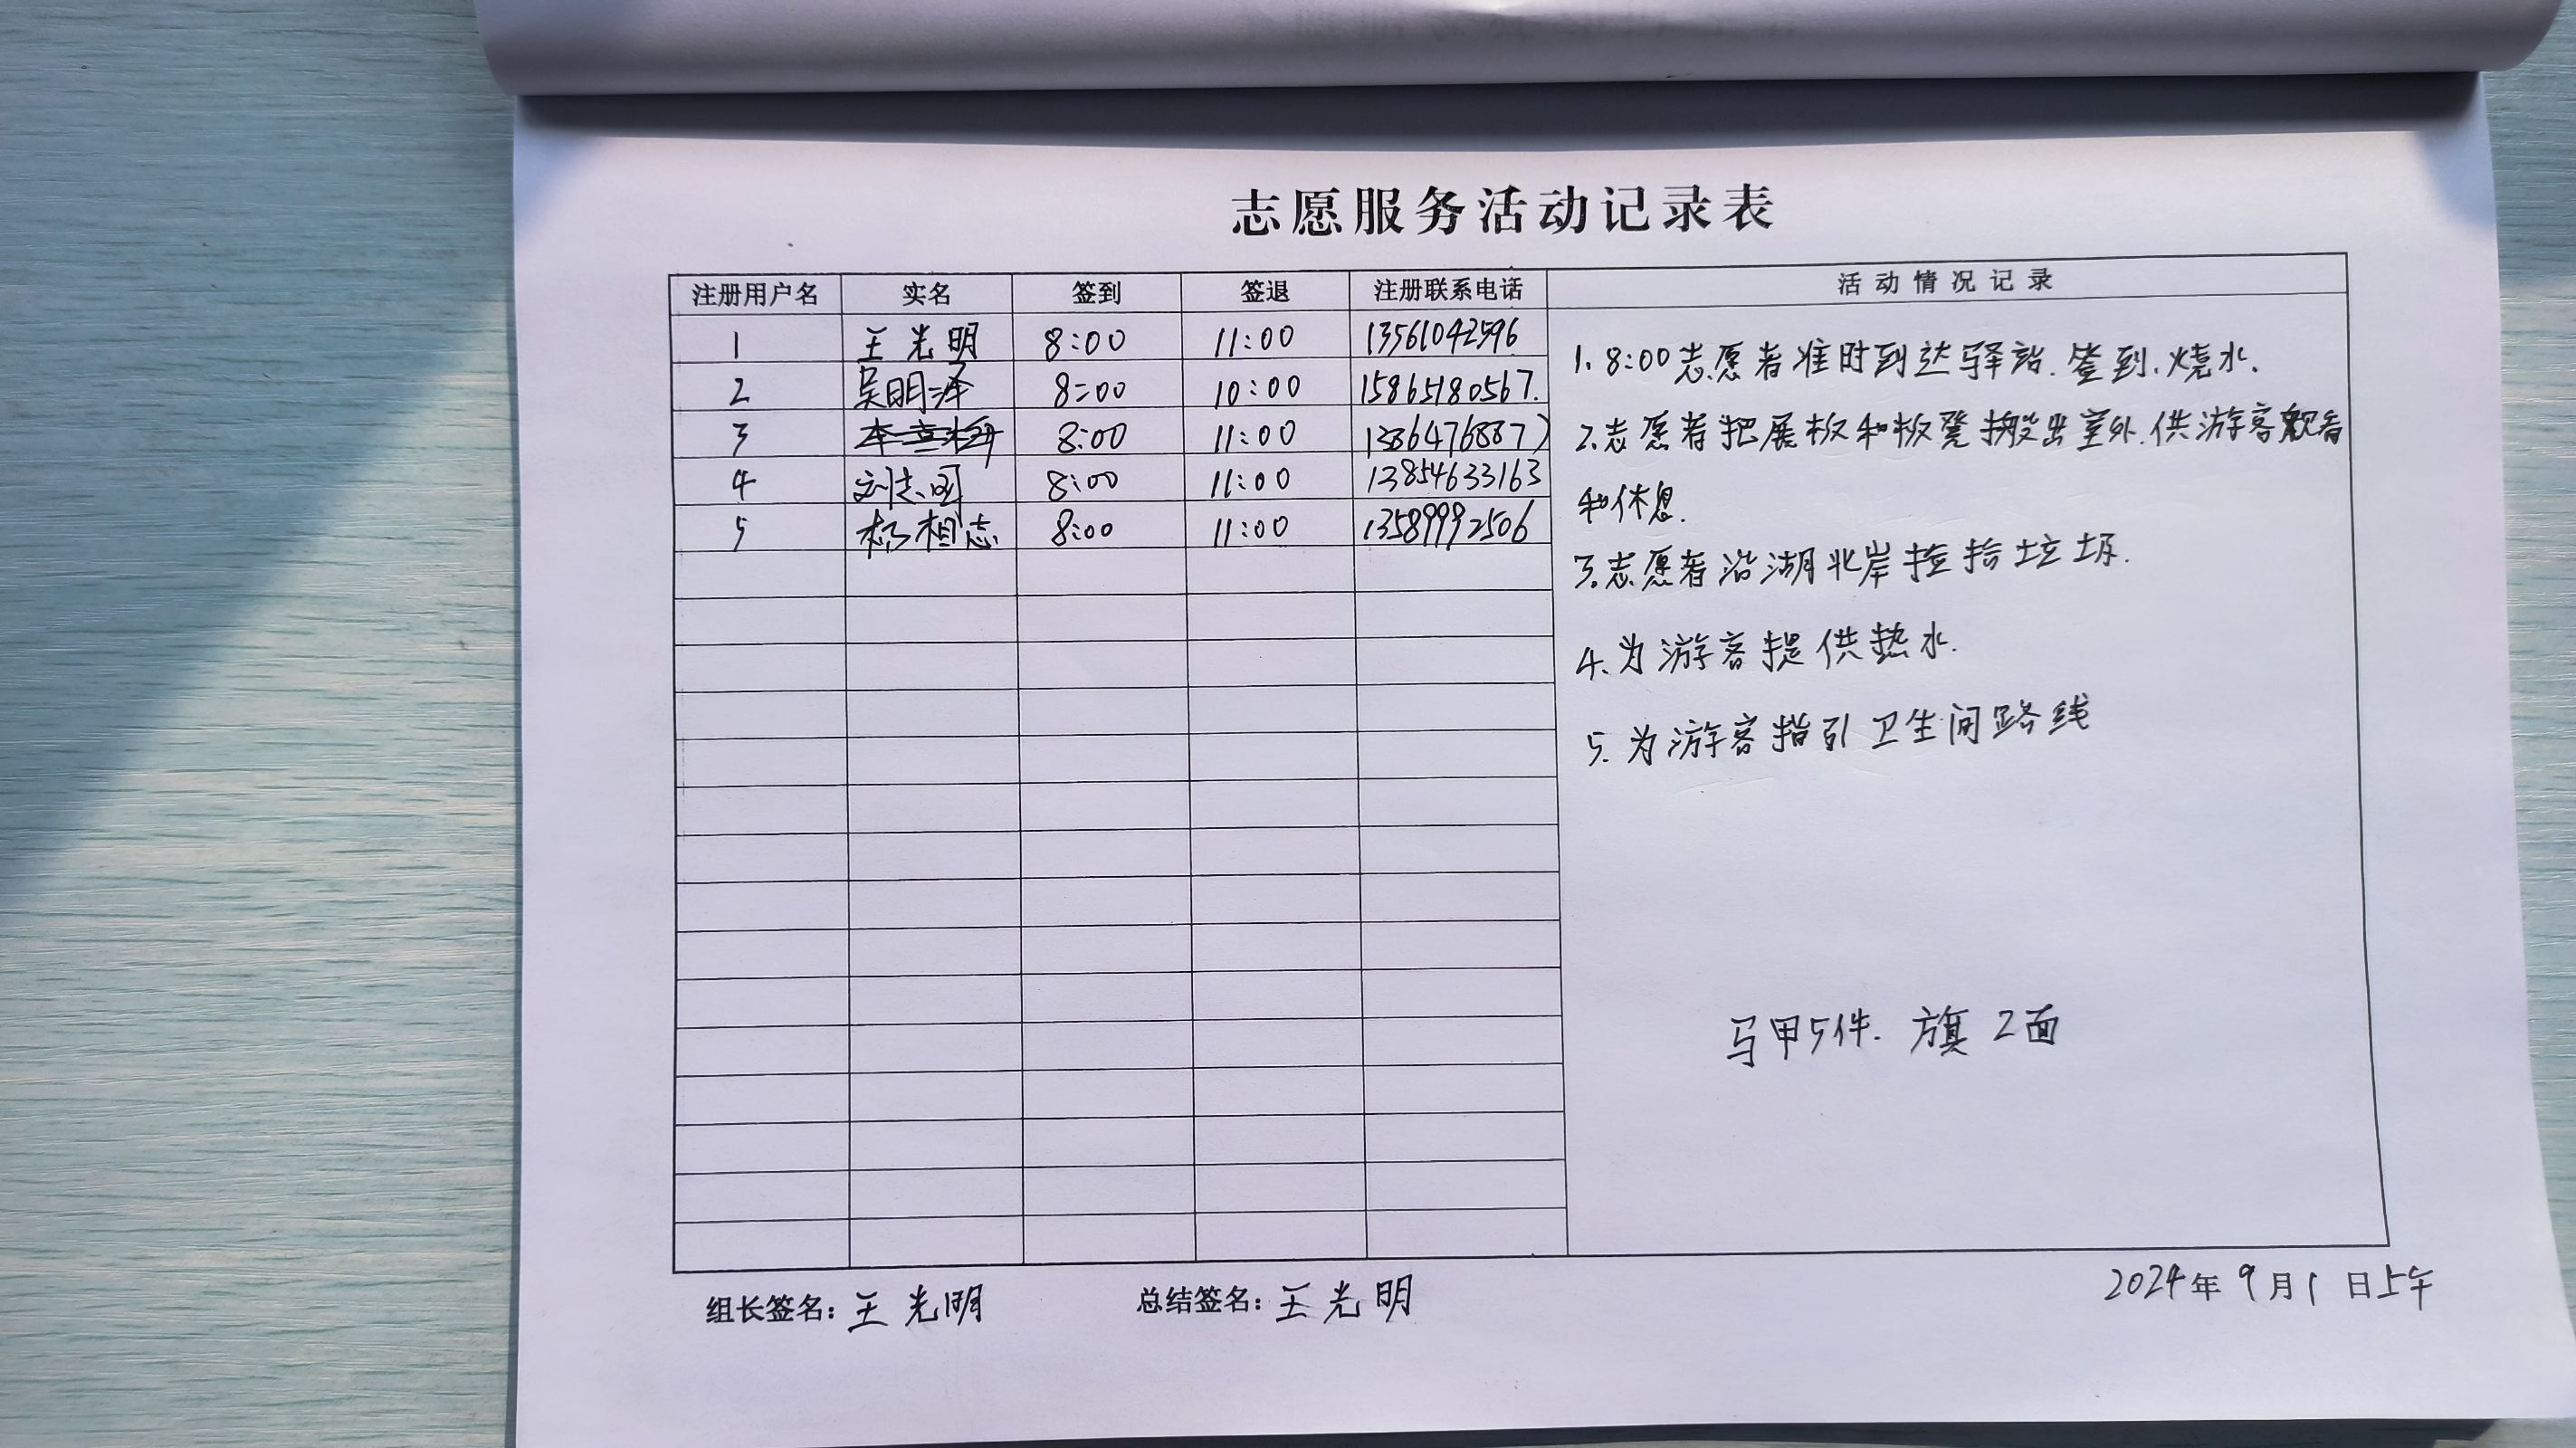 志愿服务活动记录表
注册用户名 实名 签到 签退 注册联系电话 活动情况记录
1 王光明 8:00 11:00 13561042596
2 吴明泽 8:00 10:00 15865180567.
3 8:00 11:00 13864768877
4 刘志国 8:00 11:00 13854633163
5 杨相志 8:00 11:00 13589992506
1. 8:00志愿者准时到达驿站.签到.烧水.
2.志愿者把展板和板凳搬出室外.供游客观看
和休息.
3.志愿者沿湖北岸捡拾垃圾.
4.为游客提供热水.
5.为游客指引卫生间路线
马甲5件. 旗2面
组长签名：王光明 总结签名：王光明 2024年9月1日上午